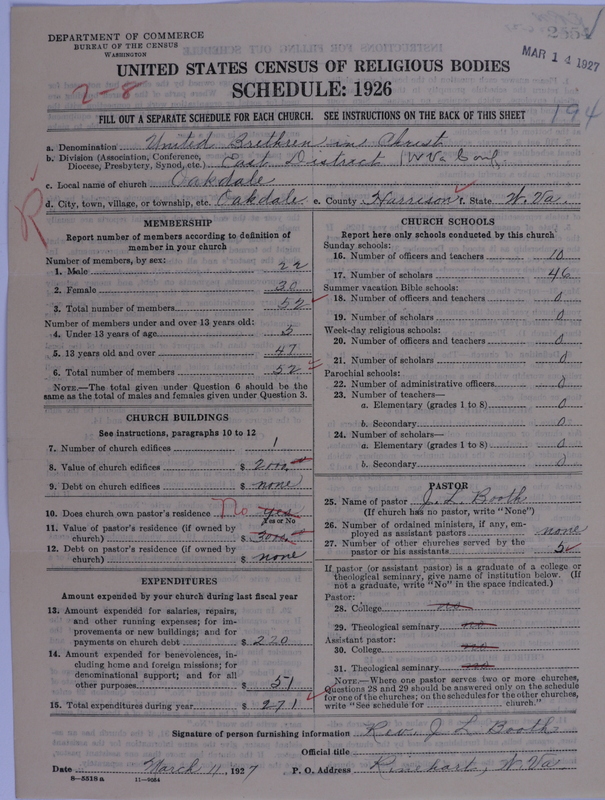 DEPARTMENT OF COMMERCE
BUREAU OF THE CENSUS
WASHINGTON
MAR 14 1927
UNITED STATES CENSUS OF RELIGIOUS BODIES
SCHEDULE: 1926
2-8
FILL OUT A SEPARATE SCHEDULE FOR EACH CHURCH. SEE INSTRUCTIONS ON THE BACK OF THIS SHEET
194
a. Denomination United Brethren in Christ
b. Division (Association, Conference, Diocese, Presbytery, Synod, etc.) East District (W Va Conf
c. Local name of church Oakdale
d. City, town, village, or township, etc. Oakdale e. County Harrison f. State W. Va.
R
MEMBERSHIP
Report number of members according to definition of member in your church
Number of members, by sex:
1. Male 22
2. Female 30
3. Total number of members 52
Number of members under and over 13 years old:
4. Under 13 years of age 5
5. 13 years old and over 47
6. Total number of members 52
NOTE.—The total given under Question 6 should be the same as the total of males and females given under Question 3.
CHURCH BUILDINGS
See instructions, paragraphs 10 to 12
7. Number of church edifices 1
8. Value of church edifices $ 2000
9. Debt on church edifices $ none
10. Does church own pastor's residence No yes
Yes or No
11. Value of pastor's residence (if owned by church) $ 3000
12. Debt on pastor's residence (if owned by church) $ none
EXPENDITURES
Amount expended by your church during last fiscal year
13. Amount expended for salaries, repairs, and other running expenses; for improvements or new buildings; and for payments on church debt $ 220
14. Amount expended for benevolences, including home and foreign missions; for denominational support; and for all other purposes $ 51
15. Total expenditures during year $ 271
CHURCH SCHOOLS
Report here only schools conducted by this church
Sunday schools:
16. Number of officers and teachers 10
17. Number of scholars 46
Summer vacation Bible schools:
18. Number of officers and teachers 0
19. Number of scholars 0
Week-day religious schools:
20. Number of officers and teachers 0
21. Number of scholars 0
Parochial schools:
22. Number of administrative officers 0
23. Number of teachers—
a. Elementary (grades 1 to 8) 0
b. Secondary 0
24. Number of scholars—
a. Elementary (grades 1 to 8) 0
b. Secondary 0
PASTOR
25. Name of pastor J. L. Booth
(If church has no pastor, write "None")
26. Number of ordained ministers, if any, employed as assistant pastors none
27. Number of other churches served by the pastor or his assistants 5
If pastor (or assistant pastor) is a graduate of a college or theological seminary, give name of institution below. (If not a graduate, write "No" in the space indicated.)
Pastor:
28. College no
29. Theological seminary no
Assistant pastor:
30. College no
31. Theological seminary no
NOTE.—Where one pastor serves two or more churches, Questions 28 and 29 should be answered only on the schedule for one of the churches; on the schedules for the other churches, write "See schedule for church."
Signature of person furnishing information Rev. J L Booth
Official title
Date March 4, 1927 P. O. Address Rinehart, W. Va
8—5518 a 11—9584